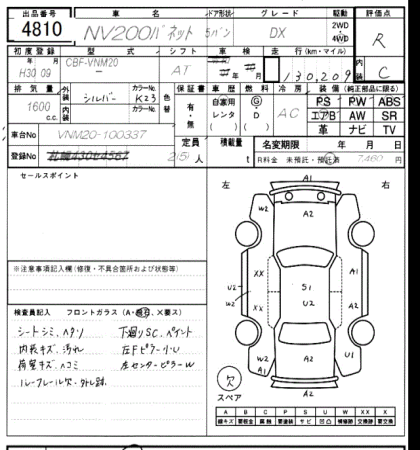 出品番号 車名 ドア形状 グレード 駆動 評価点
4810 NV200バネット 5バン DX 2WD 4WD R
初度登録 型式 シフト 車検 走行(km・マイル) 内装 C
年 月 H30 09 CBF-VNM20 AT 年 月 130,209
排気量 外装色 カラーNo. 色替 保証書 車歴 燃料 冷房 装備(純正部品に限る)
1600 c.c. シルバー K23 有・無 自家用 レンタ G・D AC PS PW ABS
エアB AW SR
革 ナビ TV
車台No VNM20-100337 定員 積載量 名変期限 年 月 日
登録No 札幌430せ4567 2(5)人 t R料金 未預託・預託済 7,460円
セールスポイント
左 右
A1
A2
W2
A2
XX
S1
U2
A1
U2
W2
XX
A2
A2
W2
A1
U1
A2
欠
スペア
※注意事項記入欄(修復・不具合箇所および状態等)
検査員記入 フロントガラス(A・飛石・X要ス)
シートシミ、ヘタリ 下廻りSC、ペイント
内装キズ、汚れ 左Fピラー小U
荷室キズ、ヘコミ 左センターピラーW
A B C P S U W X XX
線キズ 要板金 腐蝕 要塗装 サビ 凹凸 補修跡 要交換 交換済